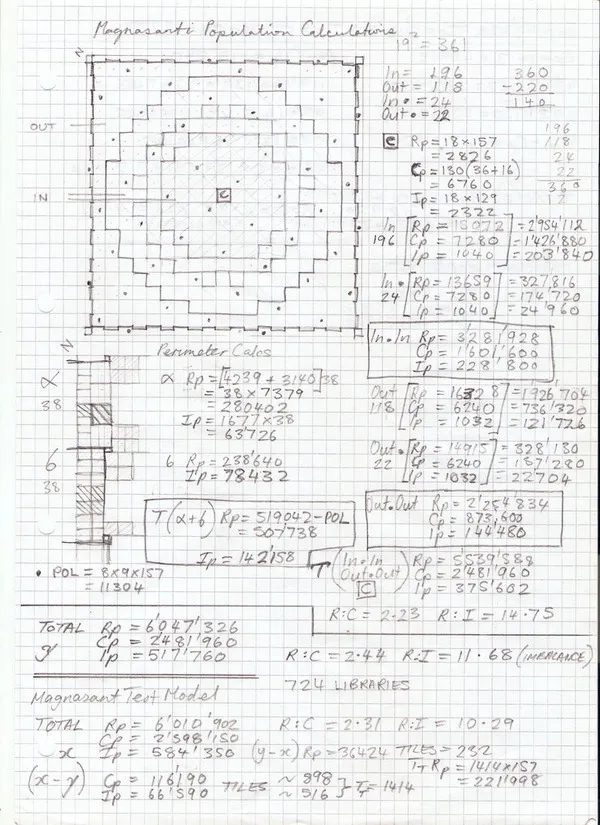 Magnasanti Population Calculations
19² = 361
N
OUT
IN
C
In = 196
Out = 118
In• = 24
Out• = 22
360
-220
140
196
118
24
22
360
12
C Rp = 18×157
= 2826
Cp = 130(36+16)
= 6760
Ip = 18×129
= 2322
In 196 [Rp = 15072] = 2'954'112
[Cp = 7280] = 1'426'880
[Ip = 1040] = 203'840
In• 24 [Rp = 13659] = 327'816
[Cp = 7280] = 174'720
[Ip = 1040] = 24'960
In•In Rp = 3'281'928
Cp = 1'601'600
Ip = 228'800
Out 118 [Rp = 16328] = 1'926'704
[Cp = 6240] = 736'320
[Ip = 1032] = 121'776
Out• 22 [Rp = 14915] = 328'130
[Cp = 6240] = 137'280
[Ip = 1032] = 22704
Out.Out Rp = 2'254'834
Cp = 873,600
Ip = 144'480
N
α
38
6
38
Perimeter Calcs
α Rp = [4239 + 3140]38
= 38×7379
= 280402
Ip = 1677×38
= 63'726
6 Rp = 238'640
Ip = 78432
T(α+6) Rp = 519042-POL
= 507'738
Ip = 142'158
• POL = 8×9×157
= 11304
T (In.In Out.Out C) Rp = 5'539'588
Cp = 2'481'960
Ip = 375'602
R:C = 2.23 R:I = 14.75
TOTAL Rp = 6'047'326
y Cp = 2'481'960
Ip = 517'760
R:C = 2.44 R:I = 11.68 (IMBALANCE)
724 LIBRARIES
Magnasant Test Model
TOTAL Rp = 6'010'902 R:C = 2.31 R:I = 10.29
Cp = 2'598'150
x Ip = 584'350 (y-x) Rp = 36424 TILES = 232
(x-y) Cp = 116'190 TILES ~ 898
Ip = 66'590 ~ 516 } T = 1414
TT Rp = 1414×157
= 221'998